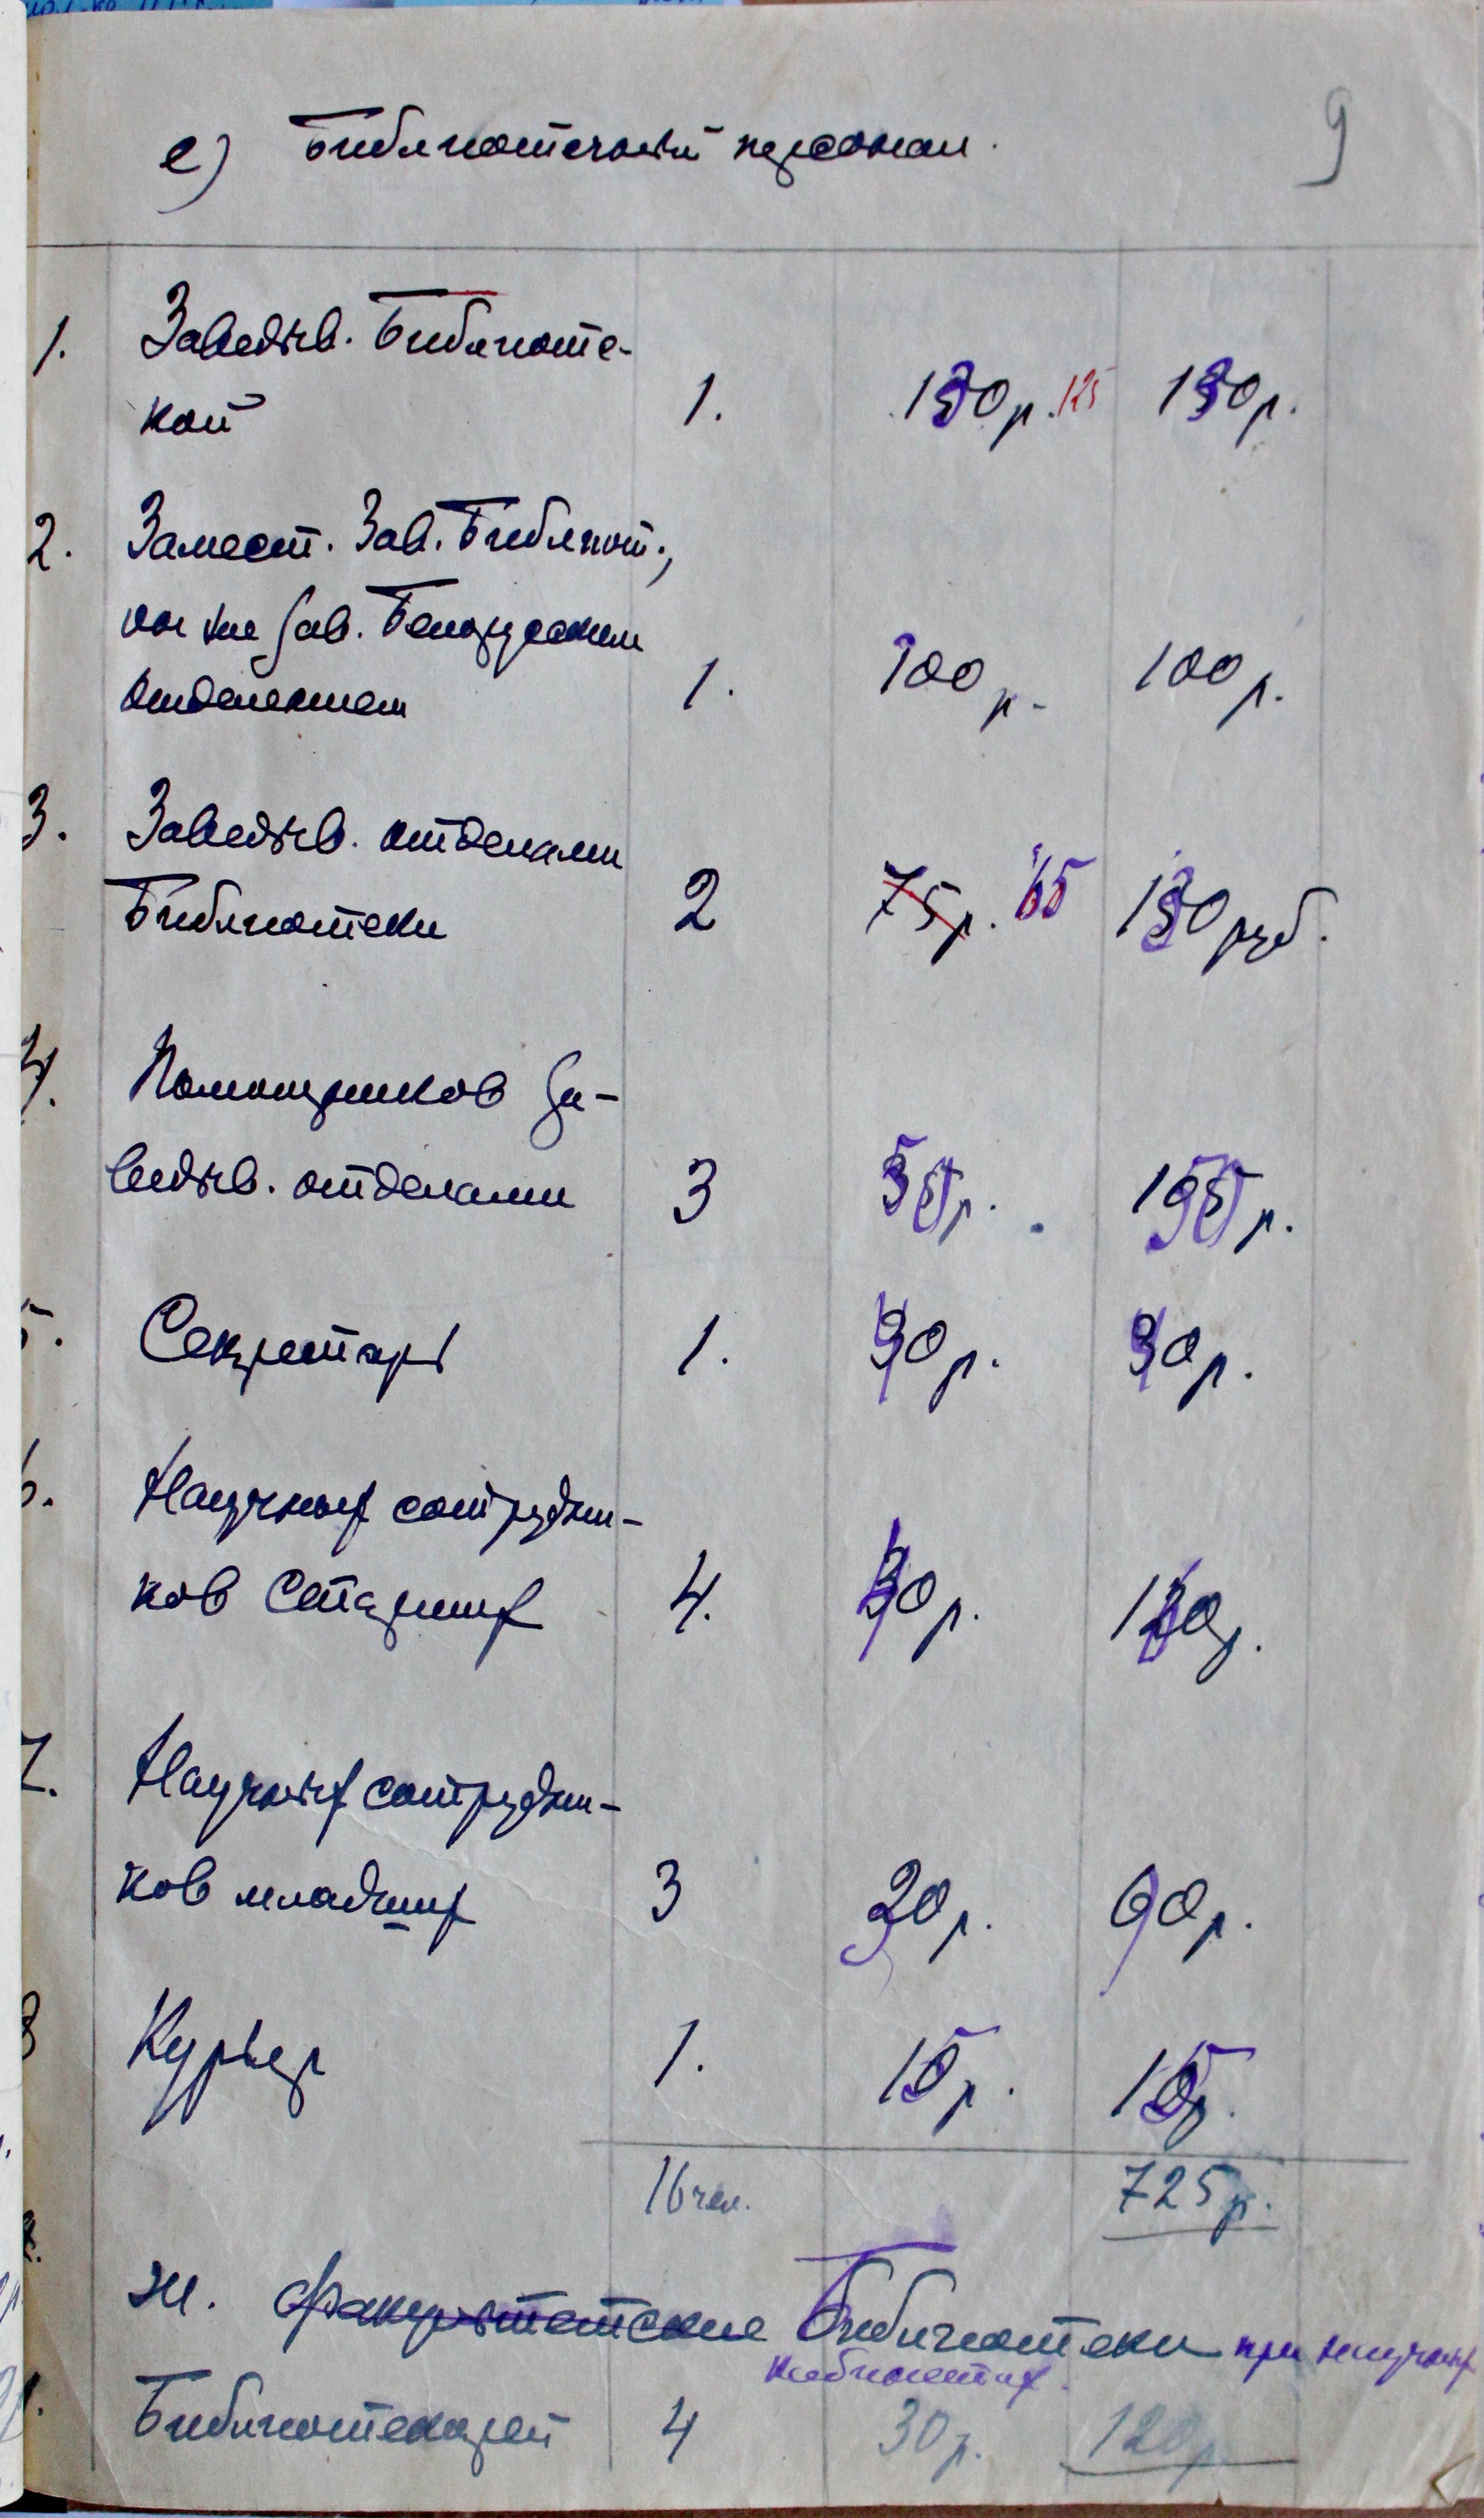 9
е) Библиотечный персонал.
1. Заведыв. Библиоте-
кой 1. 130р. 125 130р.
2. Замест. Зав. Библиот.,
он же Зав. Белорусским
отделением 1. 100р. 100р.
3. Заведыв. отделами
Библиотеки 2 75р. 65 130руб.
4. Помощников За-
ведыв. отделами 3 50р. 150р.
5. Секретарь 1. 40р. 40р.
6. Научных сотрудни-
ков Старших 4. 40р. 160р.
7. Научных сотрудни-
ков младших 3 30р. 90р.
8 Курьер 1. 15р. 15р.
16 чел. 725р.
Ж. Факультетские Библиотеки при научных
кабинетах.
1. Библиотекарей 4 30р. 120р